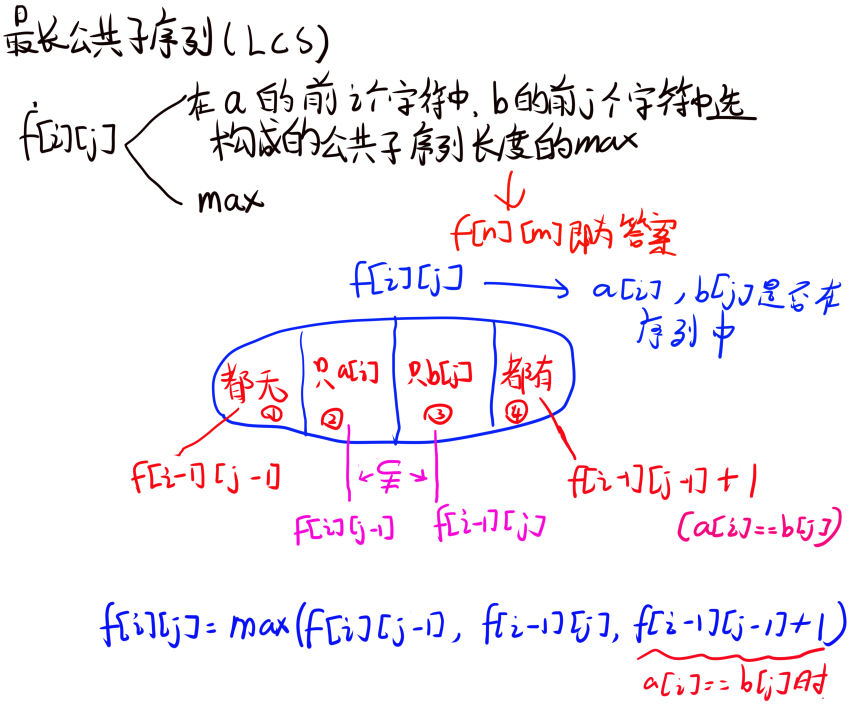 最长公共子序列(LCS)
f[i][j]
在a的前i个字符中,b的前j个字符中选
构成的公共子序列长度的max
max
f[n][m]即为答案
f[i][j] → a[i],b[j]是否在
序列中
都无 只a[i] 只b[j] 都有
① ② ③ ④
f[i-1][j-1]
f[i][j-1]
←⊊→
f[i-1][j]
f[i-1][j-1]+1
(a[i]==b[j])
f[i][j]=max(f[i][j-1], f[i-1][j], f[i-1][j-1]+1)
a[i]==b[j]时